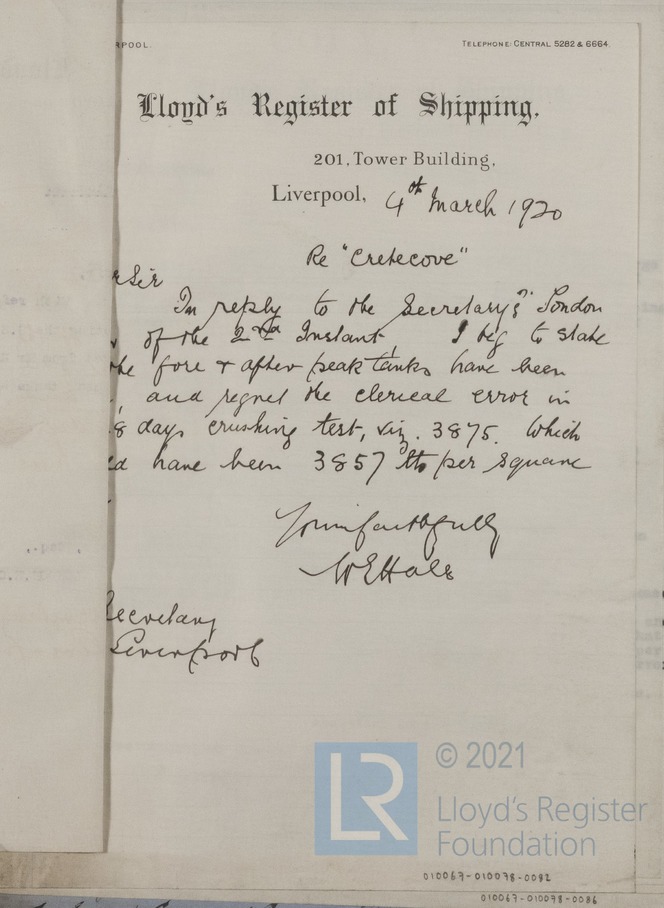 RPOOL.
TELEPHONE: CENTRAL 5282 & 6664.
Lloyd's Register of Shipping,
201, Tower Building,
Liverpool, 4th March 1920
Re "Cretecove"
r Sir
In reply to the Secretary's London
of the 2nd Instant, I beg to state
the fore & after peak tanks have been
, and regret the clerical error in
8 days crushing test, viz. 3875. Which
ld have been 3857 lbs per square
Yours faithfully
W E Hale
Secretary
Liverpool
LR
© 2021
Lloyd's Register
Foundation
010067-010078-0092
010067-010078-0086